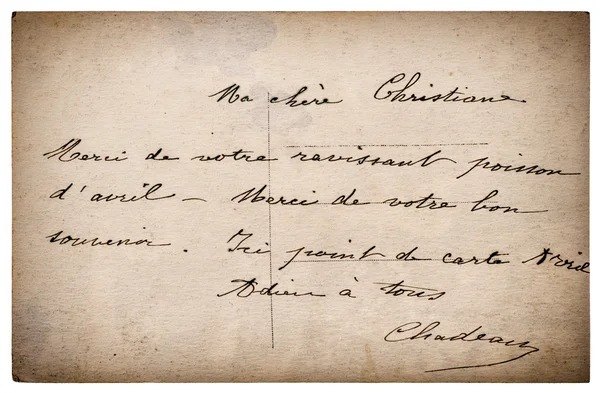 Ma chère Christiane
Merci de votre ravissant poisson
d'avril – Merci de votre bon
souvenir. Ici point de carte Avril
Adieu à tous
Chadeau